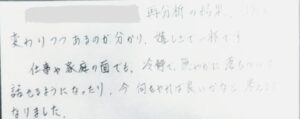 再分析の結果、
変わりつつあるのが分かり、嬉しさで一杯です
仕事や家庭の面でも、冷静で、穏やかに落ちついて
話せるようになったり、今何をやれば良いかなと考える
なりました。